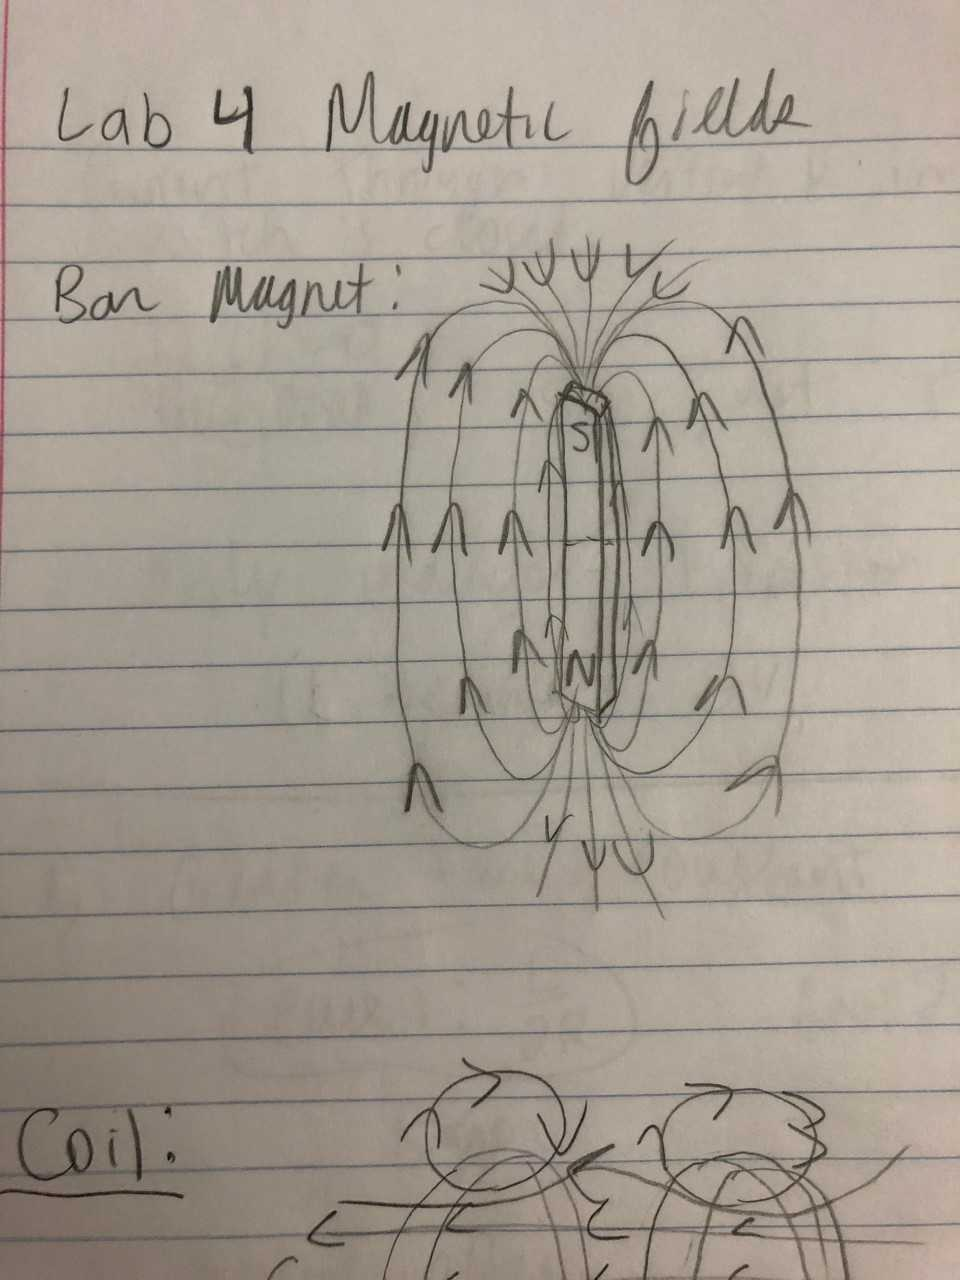 Lab 4 Magnetic fields
Bar Magnet:
S
N
Coil: